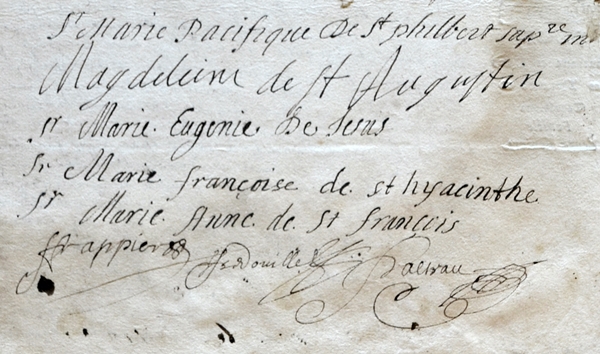 Sr Marie Pacifique De St philbert supre
Magdeleine de St Augustin
sr Marie Eugenie De Jesus
Sr Marie françoise de st hyacinthe
Sr Marie Anne de St françois